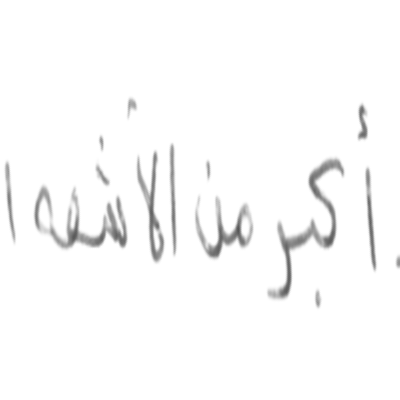 . أكبر من الأشعه ا